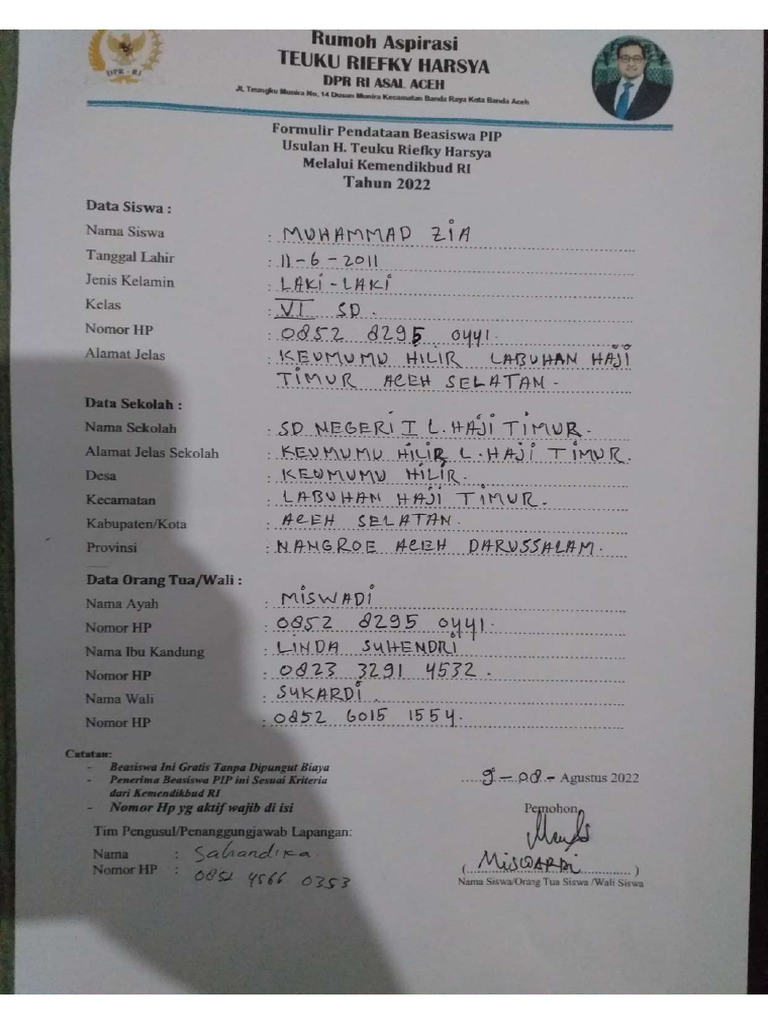 DPR - RI
Rumoh Aspirasi
TEUKU RIEFKY HARSYA
DPR RI ASAL ACEH
JL Teungku Munira No, 14 Dusun Munira Kecamatan Banda Raya Kota Banda Aceh
Formulir Pendataan Beasiswa PIP
Usulan H. Teuku Riefky Harsya
Melalui Kemendikbud RI
Tahun 2022
Data Siswa :
Nama Siswa : MUHAMMAD ZIA
Tanggal Lahir : 11-6-2011
Jenis Kelamin : LAKI-LAKI
Kelas : VI SD.
Nomor HP : 0852 8295 0441.
Alamat Jelas : KEUMUMU HILIR LABUHAN HAJI
TIMUR ACEH SELATAN.
Data Sekolah :
Nama Sekolah : SD NEGERI I L. HAJI TIMUR.
Alamat Jelas Sekolah : KEUMUMU HILIR L. HAJI TIMUR.
Desa : KEUMUMU HILIR.
Kecamatan : LABUHAN HAJI TIMUR.
Kabupaten/Kota : ACEH SELATAN.
Provinsi : NANGROE ACEH DARUSSALAM.
Data Orang Tua/Wali :
Nama Ayah : MISWADI
Nomor HP : 0852 8295 0441.
Nama Ibu Kandung : LINDA SUHENDRI
Nomor HP : 0823 3291 4532.
Nama Wali : SUKARDI
Nomor HP : 0852 6015 1554.
Catatan:
- Beasiswa Ini Gratis Tanpa Dipungut Biaya
- Penerima Beasiswa PIP ini Sesuai Kriteria
dari Kemendikbud RI
- Nomor Hp yg aktif wajib di isi
9-08- Agustus 2022
Pemohon
Tim Pengusul/Penanggungjawab Lapangan:
Nama : Sahandika
Nomor HP : 0852 4566 0353
(MISWARDI)
Nama Siswa/Orang Tua Siswa /Wali Siswa